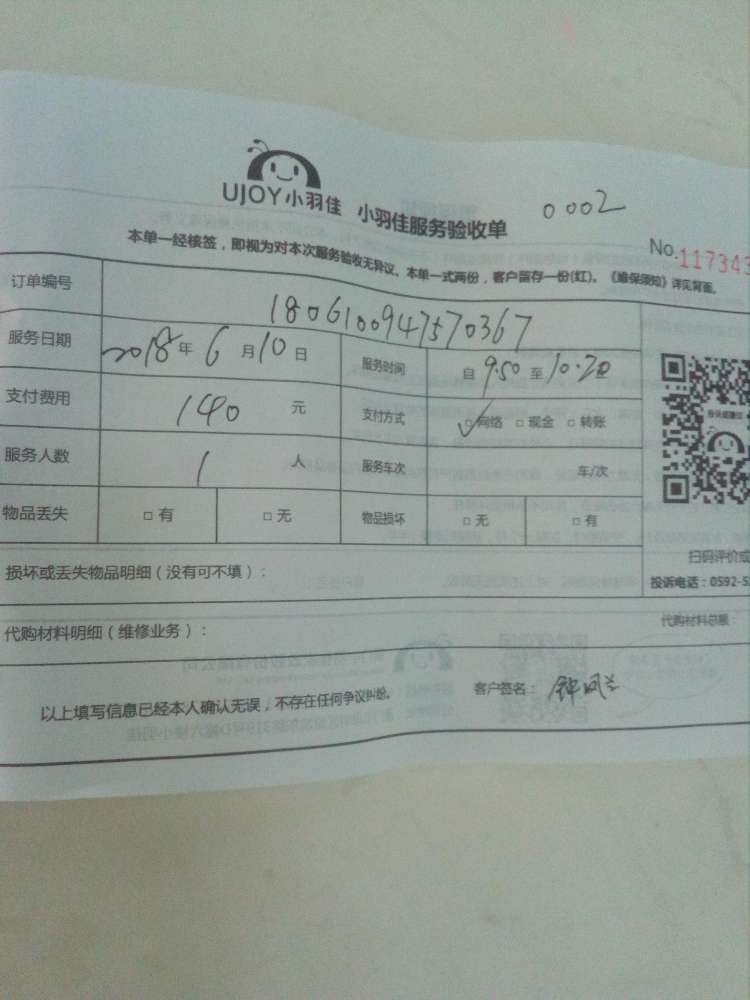 UJOY小羽佳 小羽佳服务验收单 0002
No.117343
本单一经核签，即视为对本次服务验收无异议、本单一式两份，客户留存一份(红)。《维保须知》详见背面。
订单编号 1806100947570367
服务日期 2018年6月10日 服务时间 自9:50至10:20
支付费用 140元 支付方式 ✓□网络 □现金 □转账
服务人数 1人 服务车次 车/次
物品丢失 □有 □无 物品损坏 □无 □有
扫码评价或
损坏或丢失物品明细（没有可不填）：
投诉电话：0592-5
代购材料明细（维修业务）： 代购材料总额：
以上填写信息已经本人确认无误，不存在任何争议纠纷。 客户签名：钟凤兰